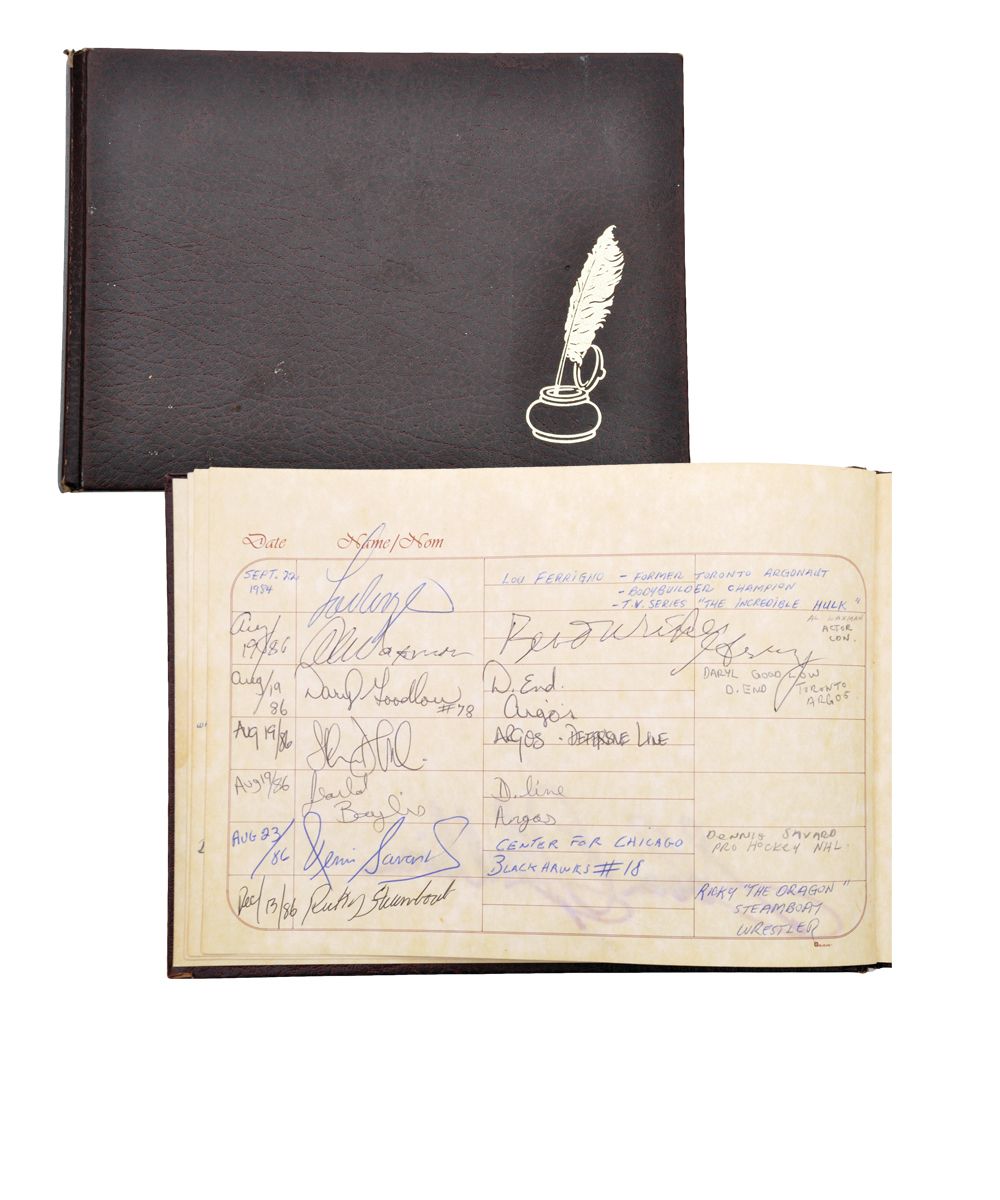 Date Name/Nom
SEPT. 1984
LOU FERRIGNO - FORMER TORONTO ARGONAUT
- BODYBUILDER CHAMPION
- T.V. SERIES "THE INCREDIBLE HULK"
Aug 19/86 Al Waxman Best Wishes
AL WAXMAN
ACTOR
CON.
Aug/19 86 Daryl Goodlow #78
D. End.
Argo's
DARYL GOODLOW
D. END TORONTO
ARGOS
Aug 19/86
ARGOS - DEFENSIVE LINE
Aug 19/86
Baylis
D. line
Argos
AUG 23/86 Denis Savard
CENTER FOR CHICAGO
BLACKHAWKS #18
DENNIS SAVARD
PRO HOCKEY NHL.
Dec/13/86 Ricky Steamboat
RICKY "THE DRAGON"
STEAMBOAT
WRESTLER